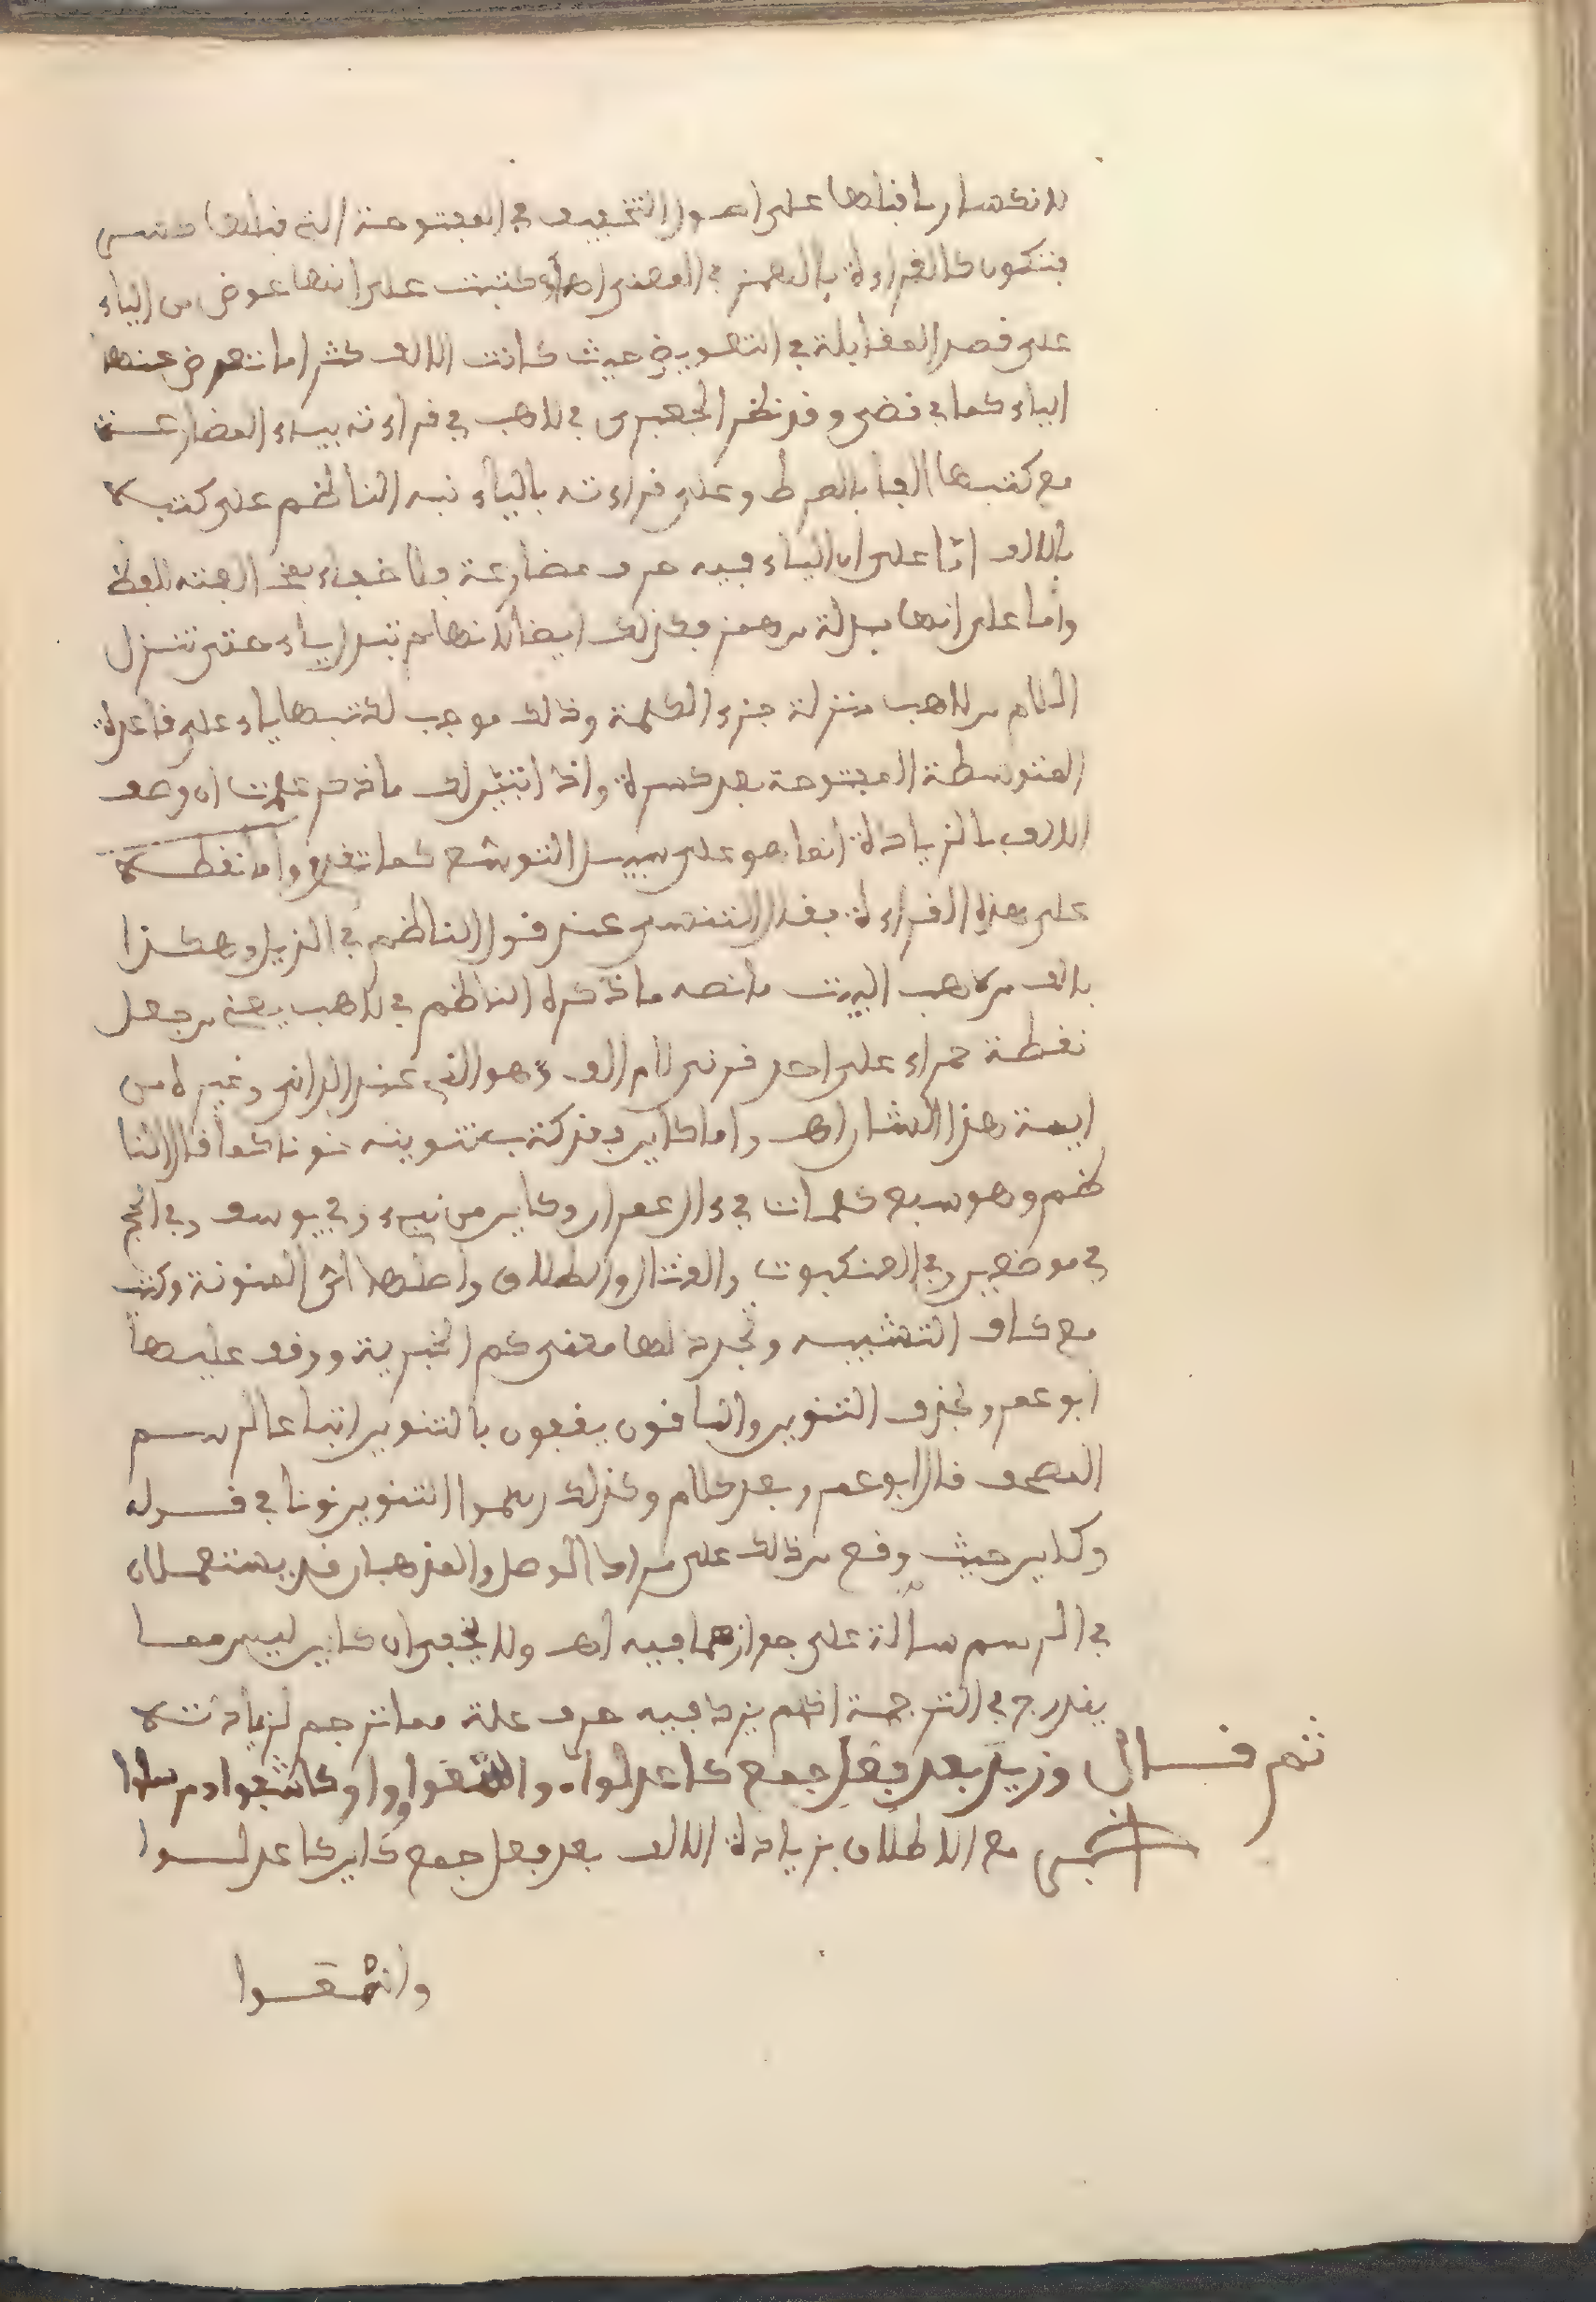 لانكسار ما قبلها على احد وجه التخفيف في المفتوحة التي قبلها كسر
فتكون كالقراءة بالهمز في المعنى اهـ او كتبت على انها عوض من الياء
على قصد المقابلة في التعويض حيث كانت الالف كثيرا ما تعوض عنها
الياء كما في قضى وقد نظر الجعبري في لاهب في قراءته بياء المضارعة
مع كتبها الفا بالصرط وعلى قراءته بالياء نبه الناظم على كتبه
بالالف اما على ان الياء فيه حرف مضارعة فلا خفاء في الفته للفظ
واما على انها مبدلة من همز فكذلك ايضا لانها لم تبدل ياء حتى تنزل
اللام من لاهب منزلة جزء الكلمة وذلك موجب لكتبها ياء على قاعدة
المتوسطة المفتوحة بعد كسرة واذا تبين لك ما ذكر علمت ان وصف
الالف بالزيادة انما هو على سبيل التوسع كما تقدم واما نقطه
على هذه القراءة فقال التنسي عند قول الناظم في الذيل وهكذا
بالف من لاهب البيت ما نصه ما ذكره الناظم في لاهب يعني من جعل
نقطة حمراء على احد قرني لام الف هو الذي عند الداني وغيره من
ايمة هذا الشان اهـ واما كاين فذكر كتب تنوينه نونا كما قال النا
ظم وهو سبع كلمات في ءال عمران وكاين من نبيء وفي يوسف وفي الحج
في موضعين وفي العنكبوت والقتال والطلاق واصلها اي المنونة وكبت
مع كاف التشبيه وتجرد لها معنى كم الخبرية ووقف عليها
ابو عمرو بحذف التنوين والباقون يقفون بالتنوين اتباعا لرسم
المصحف قال ابو عمرو بعد كلام وكذلك رسموا التنوين نونا في قوله
وكاين حيث وقع من ذلك على مراد الوصل والمذهبان قد يستعملان
في الرسم دلالة على جوازهما فيه اهـ ولا يخفى ان كاين ليس مما
يندرج في الترجمة اذ لم يزد فيه حرف علة مما ترجم لزيادته
ثم قال وزيد بعد فعل جمع كاعدلوا واسعوا وواو كاشفوا ومرسلوا
مع الاطلاق بزيادة الالف بعد فعل جمع كاين كاعدلوا
واسعوا